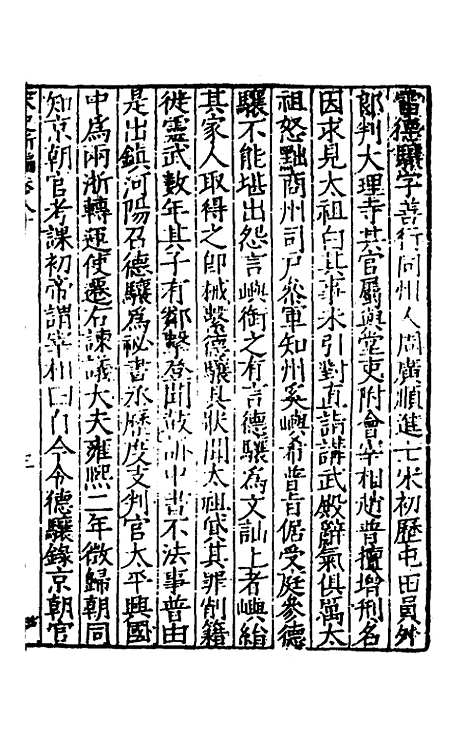 雷德驤字善行同州人周廣順進士宋初歷屯田員外
郎判大理寺其官屬與堂吏附會宰相趙普擅增刑名
因求見太祖白其事未引對直詣講武殿辭氣俱厲太
祖怒黜商州司戶參軍知州奚嶼希普旨倨受庭參德
驤不能堪出怨言嶼銜之有言德驤為文訕上者嶼紿
其家人取得之即械繫德驤具狀聞太祖貸其罪削籍
徙靈武數年其子有鄰擊登聞鼓訴中書不法事普由
是出鎮河陽召德驤為祕書丞歷度支判官太平興國
中為兩浙轉運使遷右諫議大夫雍熙二年徵歸朝同
知京朝官考課初帝謂宰相曰自今令德驤錄京朝官